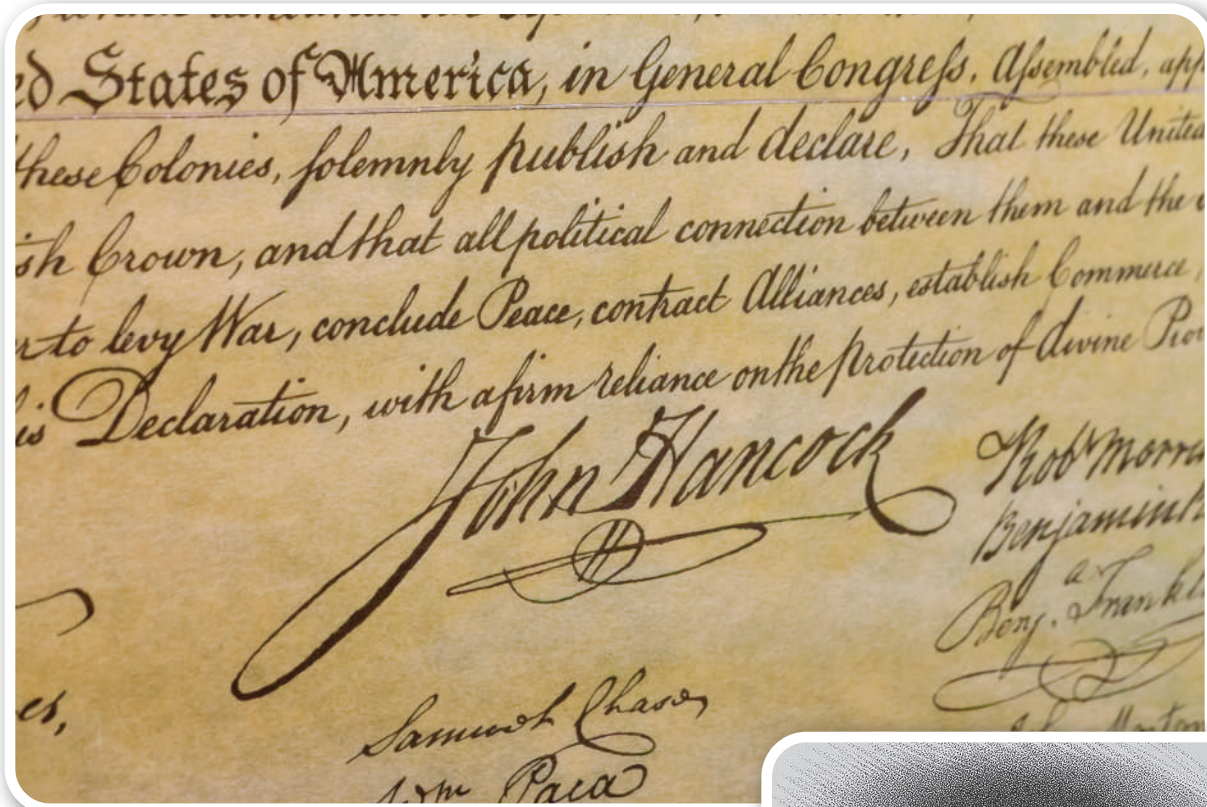 ed States of America, in General Congreſs, Aſsembled, app
these Colonies, solemnly publish and declare, That these United
ish Crown, and that all political connection between them and the
er to levy War, conclude Peace, contract Alliances, establish Commerce,
is Declaration, with a firm reliance on the protection of divine Prov
John Hancock
Robt Morris
Benjamin R
Benj. Frankl
es,
Samuel Chase
Wm Paca
Morton